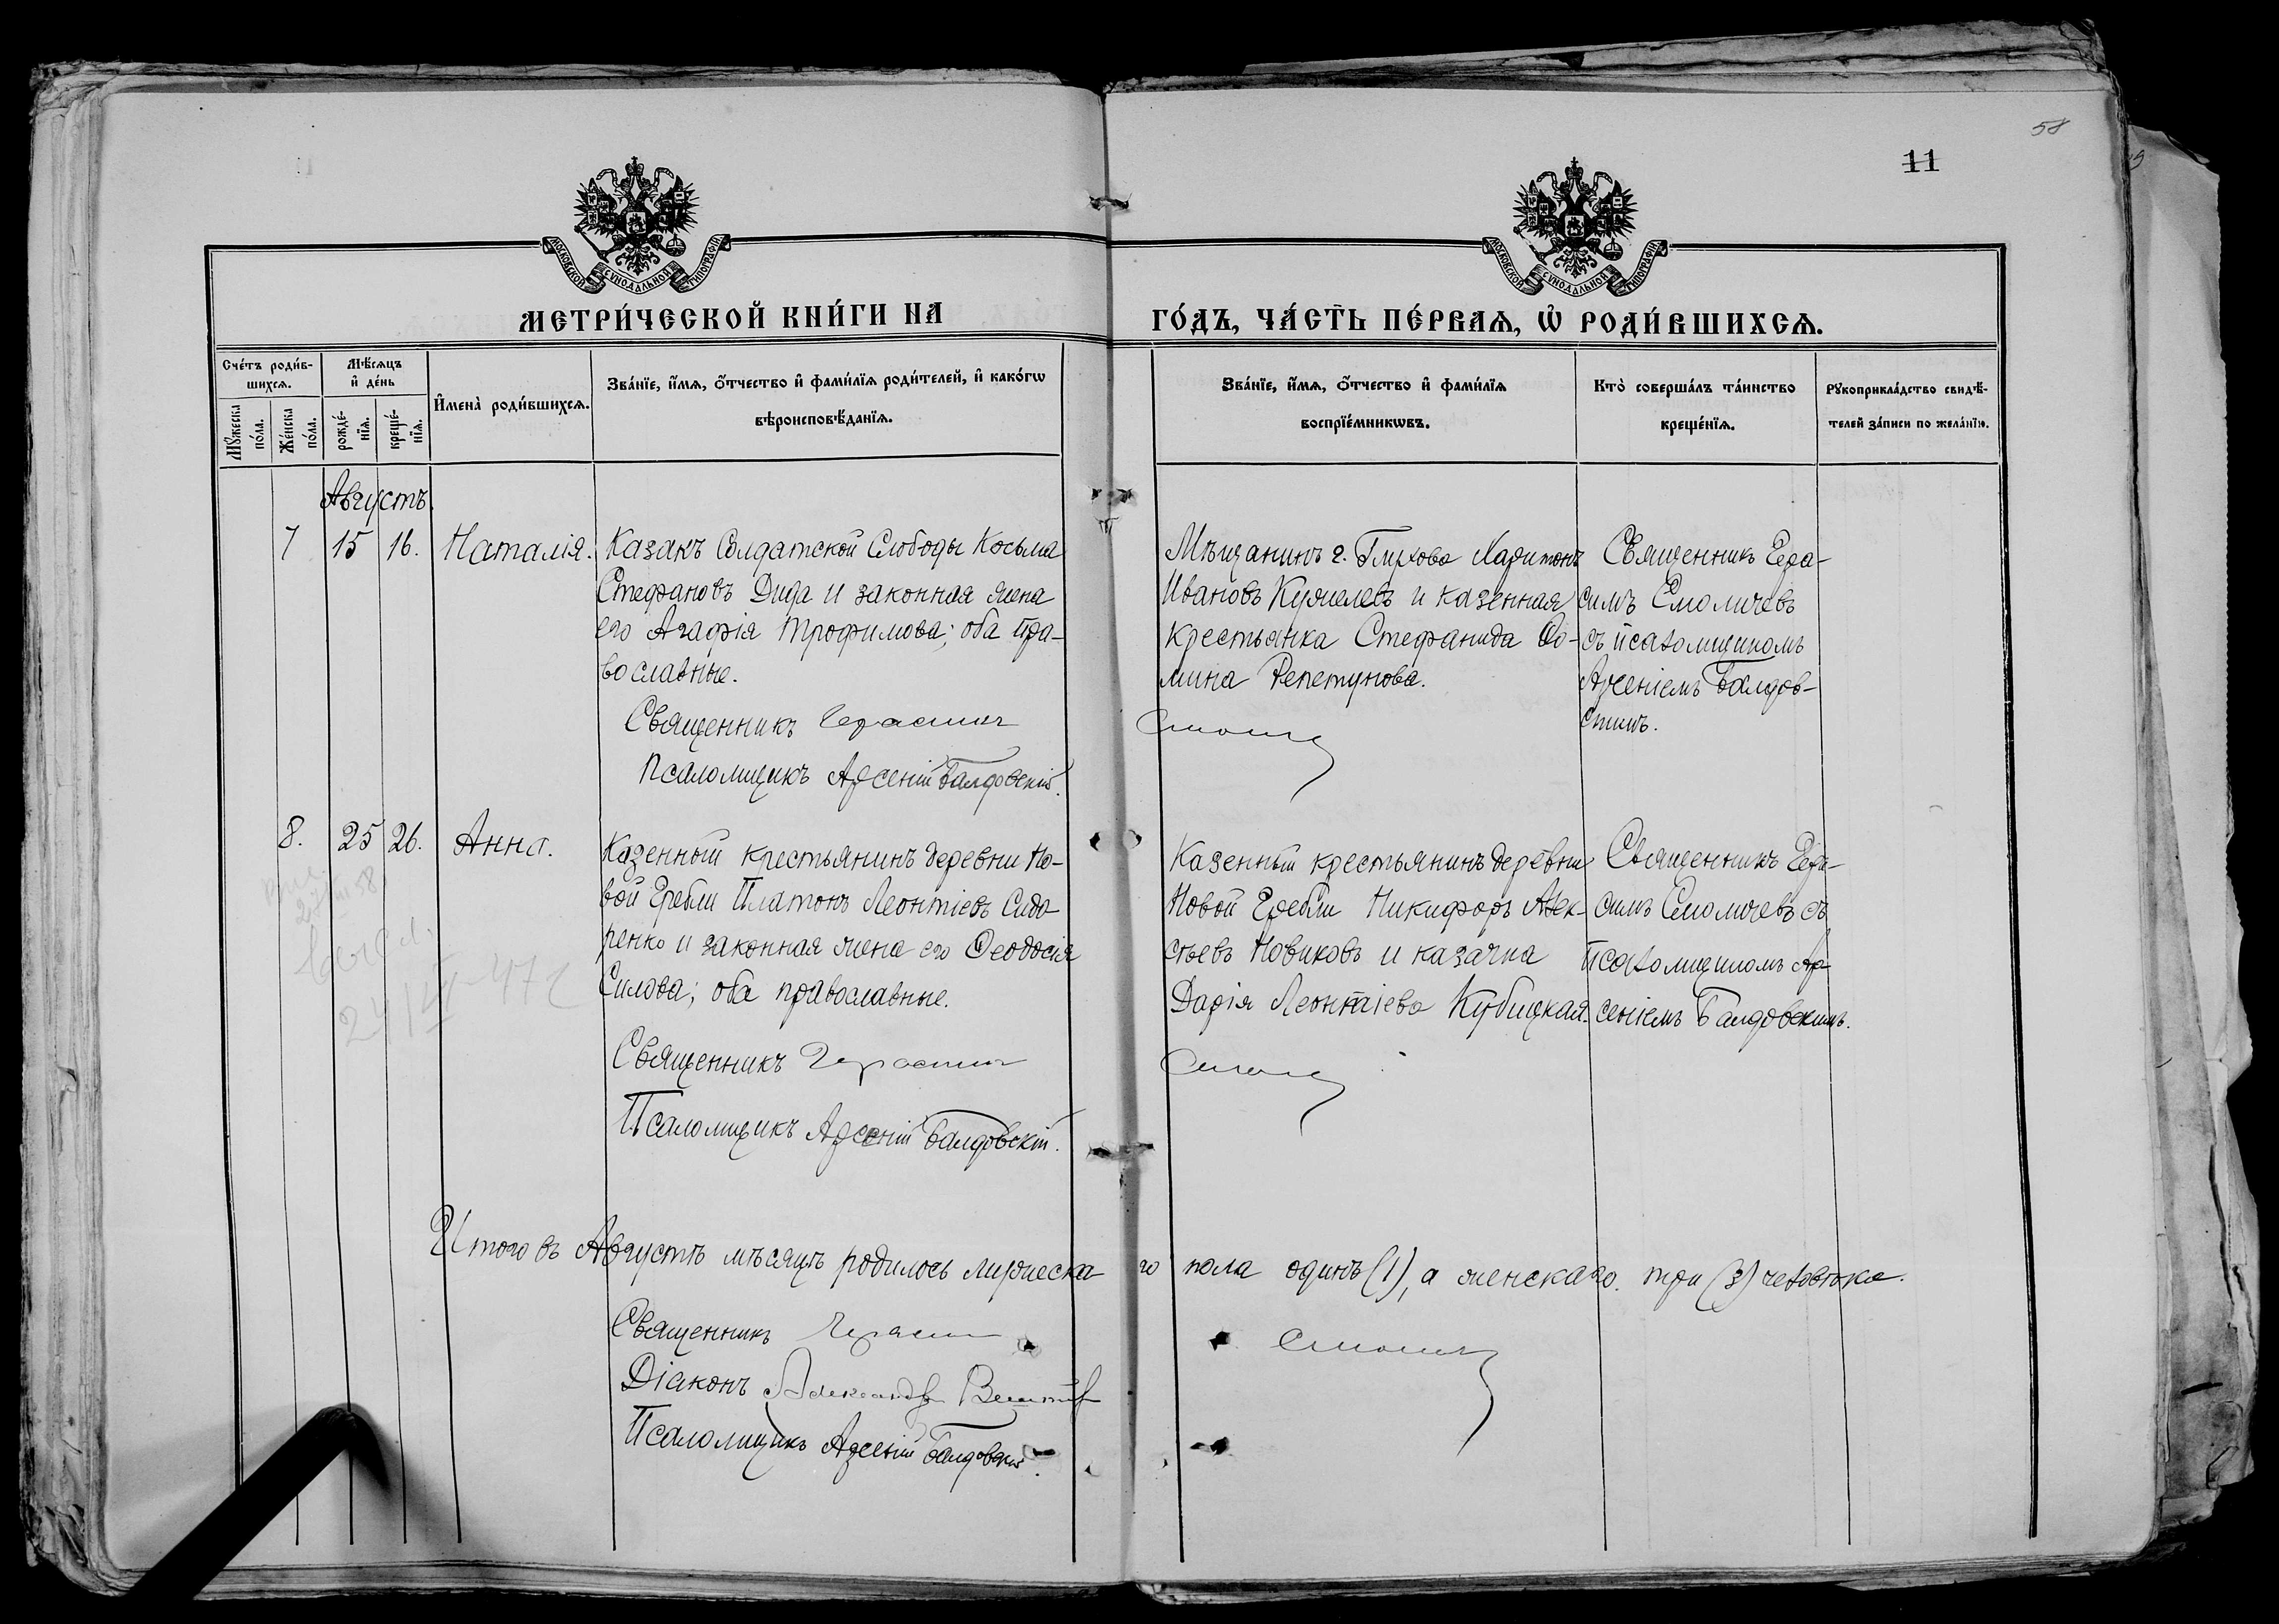 58
11
МОСКОВСКОЙ СУНОДАЛЬНОЙ ТИПОГРАФІИ
МОСКОВСКОЙ СУНОДАЛЬНОЙ ТИПОГРАФІИ
МЕТРИ́ЧЕСКОЙ КНИ́ГИ НА
ГО́ДЪ, ЧА́СТЬ ПЕ́РВАѦ, Ѽ РОДИ́ВШИХСѦ.
Счétъ роди́в-
шихсѧ.
Мꙋ́жеска
по́ла.
Же́нска
по́ла.
Мѣ́сѧцъ
и҆ де́нь
рожде́-
нїѧ.
креще́-
нїѧ.
И҆мена̀ роди́вшихсѧ.
Зва́нїе, и҆́мѧ, ѻ҆́тчество и҆ фами́лїѧ роди́телей, и҆ како́гѡ
вѣроисповѣ́данїѧ.
Зва́нїе, и҆́мѧ, ѻ҆́тчество и҆ фами́лїѧ
воспрїе́мникѡвъ.
Кто̀ соверша́лъ та́инство
креще́нїѧ.
Рꙋкоприкла́дство свидѣ́-
телей за́писи по жела́нїю.
Августъ.
7 15 16. Наталія.
Казакъ Солдатской Слободы Косьма
Стефановъ Дида и законная жена
его Агафія Трофимова; оба пра-
вославные.
Священникъ Герасим
Псаломщикъ Арсеній Балдовскій.
Мѣщанинъ г. Глухова Харитонъ
Ивановъ Кужелевъ и казенная
крестьянка Стефанида Ѳо-
мина Репетунова.
Смолич
Священникъ Гера-
симъ Смоличевъ
съ псаломщикомъ
Арсеніемъ Балдов-
скимъ.
8. 25 26. Анна.
Казенный крестьянинъ деревни Но-
вой Гребли Платонъ Леонтіевъ Сидо-
ренко и законная жена его Ѳеодосія
Силова; оба православные.
Священникъ Герасим
Псаломщикъ Арсеній Балдовскій.
Казенный крестьянинъ деревни
Новой Гребли Никифоръ Алек-
сѣевъ Новиковъ и казачка
Дарія Леонтіева Кубицкая.
Смолич
Священникъ Гера-
симъ Смоличевъ съ
псаломщикомъ Ар-
сеніемъ Балдовскимъ.
Итого въ Августѣ мѣсяцѣ родилось мужеска-
го пола одинъ (1), а женскаго три (3) человѣка.
Священникъ Герасим
Смолич
Діаконъ Александръ
Псаломщикъ Арсеній Балдовскій.